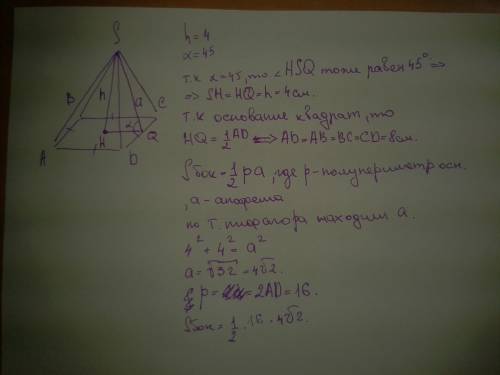 S
h = 4
α = 45
B
h
a
C
т.к α = 45, то ∠HSQ тоже равен 45° ⇒
⇒ SH = HQ = h = 4 см.
т.к основание квадрат, то
α
Q
h
A
D
HQ = 1/2 AD ⇔ AD = AB = BC = CD = 8 см.
Sбок = 1/2 pa, где p - полупериметр осн.
, a - апофема
по т. пифагора находим a.
4² + 4² = a²
a = √32 = 4√2.
p = = 2AD = 16.
Sбок = 1/2 · 16 · 4√2.